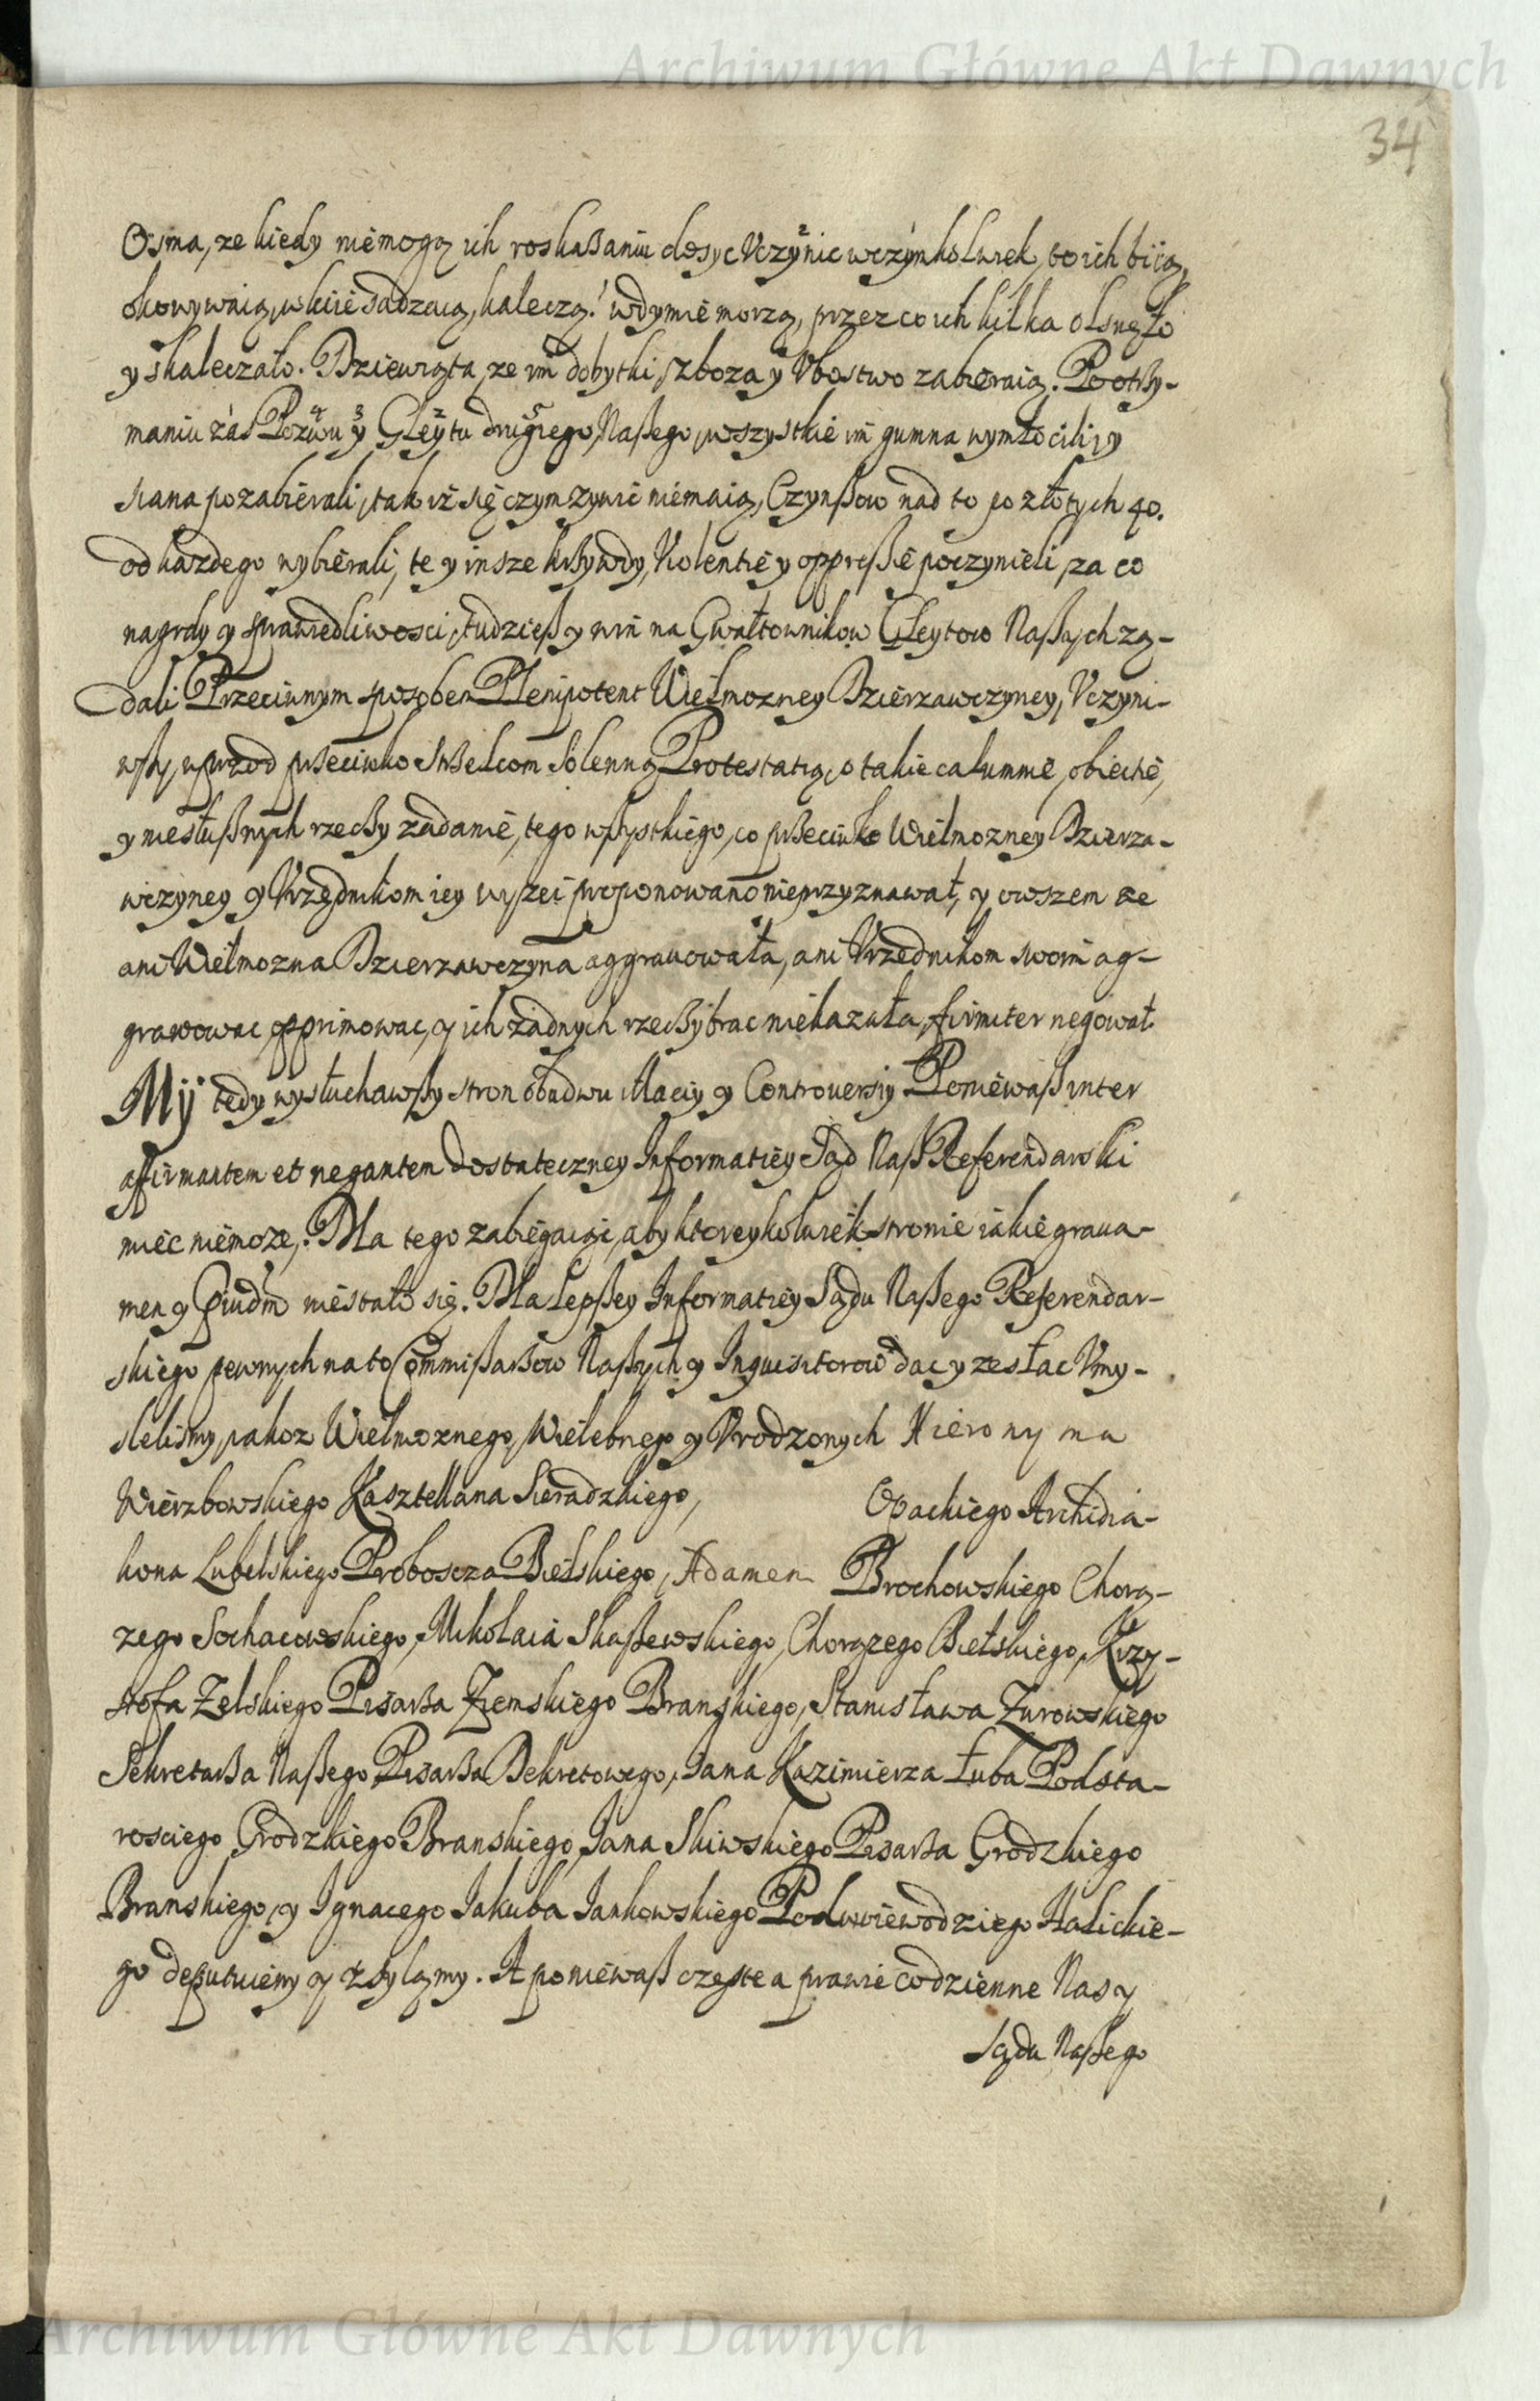 Archiwum Główne Akt Dawnych
34
Osma, ze kiedy niemogą ich roskaßaniu dosyc Uczynic wczymkolwiek, to ich biią,
okowywaią, wkiie sadzaią, kaleczą, wdymie morzą, przez co ich kilka olsnęło
y skaleczało. Dziewiąta, ze im dobytki, zboza y Ubostwo zabieraią. Po otrßy-
maniu zas Pozwu y Gleytu drugiego Naßego, wszystkie im gumna wymłocili, y
siana pozabierali, tak iż się czym zywic niemaią, Czynßow nad to po złotych 40.
od kazdego wybierali, te y insze krßywdy, Violentie y oppressie poczynieli, za co
nagrody y sprawiedliwosci, tudzieß y win na Gwałtownikow Gleytow Naßych zą-
dali Przeciwnym sposobem Plenipotent Wielmozney Dzierzawczyney, Uczyni-
wßy wprzod przeciwko Strßelcom Solenną Protestatią, o takie calumnie, obiectie,
y niesłußnych rzeczy zadanie, tego wßystkiego, co prßeciwko Wielmozney Dzierza-
wczyney y Vrzędnikom iey wyzei proponowano nieprzyznawał, y owszem ze
ani Wielmozna Dzierzawczyna aggrauowała, ani Vrzednikom swoim ag-
grawowac, opprimowac, y ich zadnych rzeczy brac niekazała, firmiter negował.
Mÿ tedy wysłuchawßy stron obudwu illaciy y Controuersiy Poniewaß inter
affirmantem et negantem dostateczney Informatiey Sąd Naß Referendarski
miec niemoze, Dla tego zabiegaiąc, aby ktoreykolwiek stronie iakie graua-
men y Piudm niestało się. Dla Lepßey Informatiey Sądu Naßego Referendar-
skiego pewnych na to Commißarßow Naßych y Inquisitorow dac y zesłac Umy-
slelismy, iakoz Wielmoznego, Wielebnego y Vrodzonych Hieronyma
Wierzbowskiego Kasztellana Sieradzkiego, Opackiego Archidia-
kona Lubelskiego Proboscza Bielskiego, Adamem Brochowskiego Chorą-
zego Sochacowskiego, Mikołaia Skaßewskiego, Chorązego Bielskiego, Krzy-
stofa Zelskiego Pisarßa Ziemskiego Branskiego, Stanisława Zurowskiego
Sekretarßa Naßego Pisarßa Dekretowego, Jana Kazimierza Łuba Podsta-
rosciego Grodzkiego Branskiego, Jana Skiwskiego Pisarßa Grodzkiego
Branskiego, y Ignacego Jakuba Jankowskiego Podwoiewodziego Halickie-
go deputuiemy y zsyłamy. A poniewaß częste a prawie codzienne Nas y
Sądu Naßego
Archiwum Główne Akt Dawnych